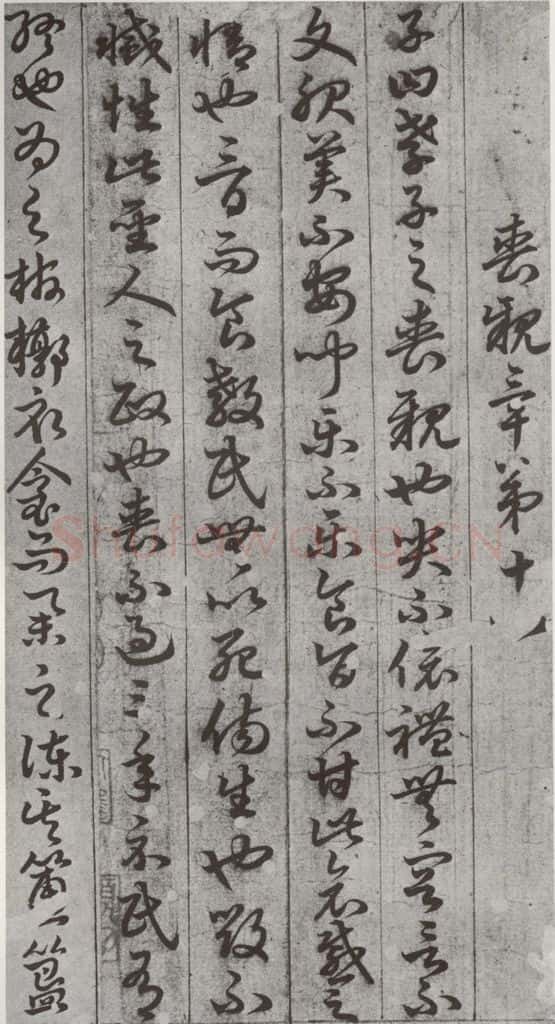 喪親章第十八
子曰孝子之喪親也哭不偯禮無容言不
文服美不安聞樂不樂食旨不甘此哀慼之
情也三日而食教民無以死傷生也毀不
滅性此聖人之政也喪不過三年示民有
終也為之棺槨衣衾而舉之陳其簠簋
Shufawang.CN